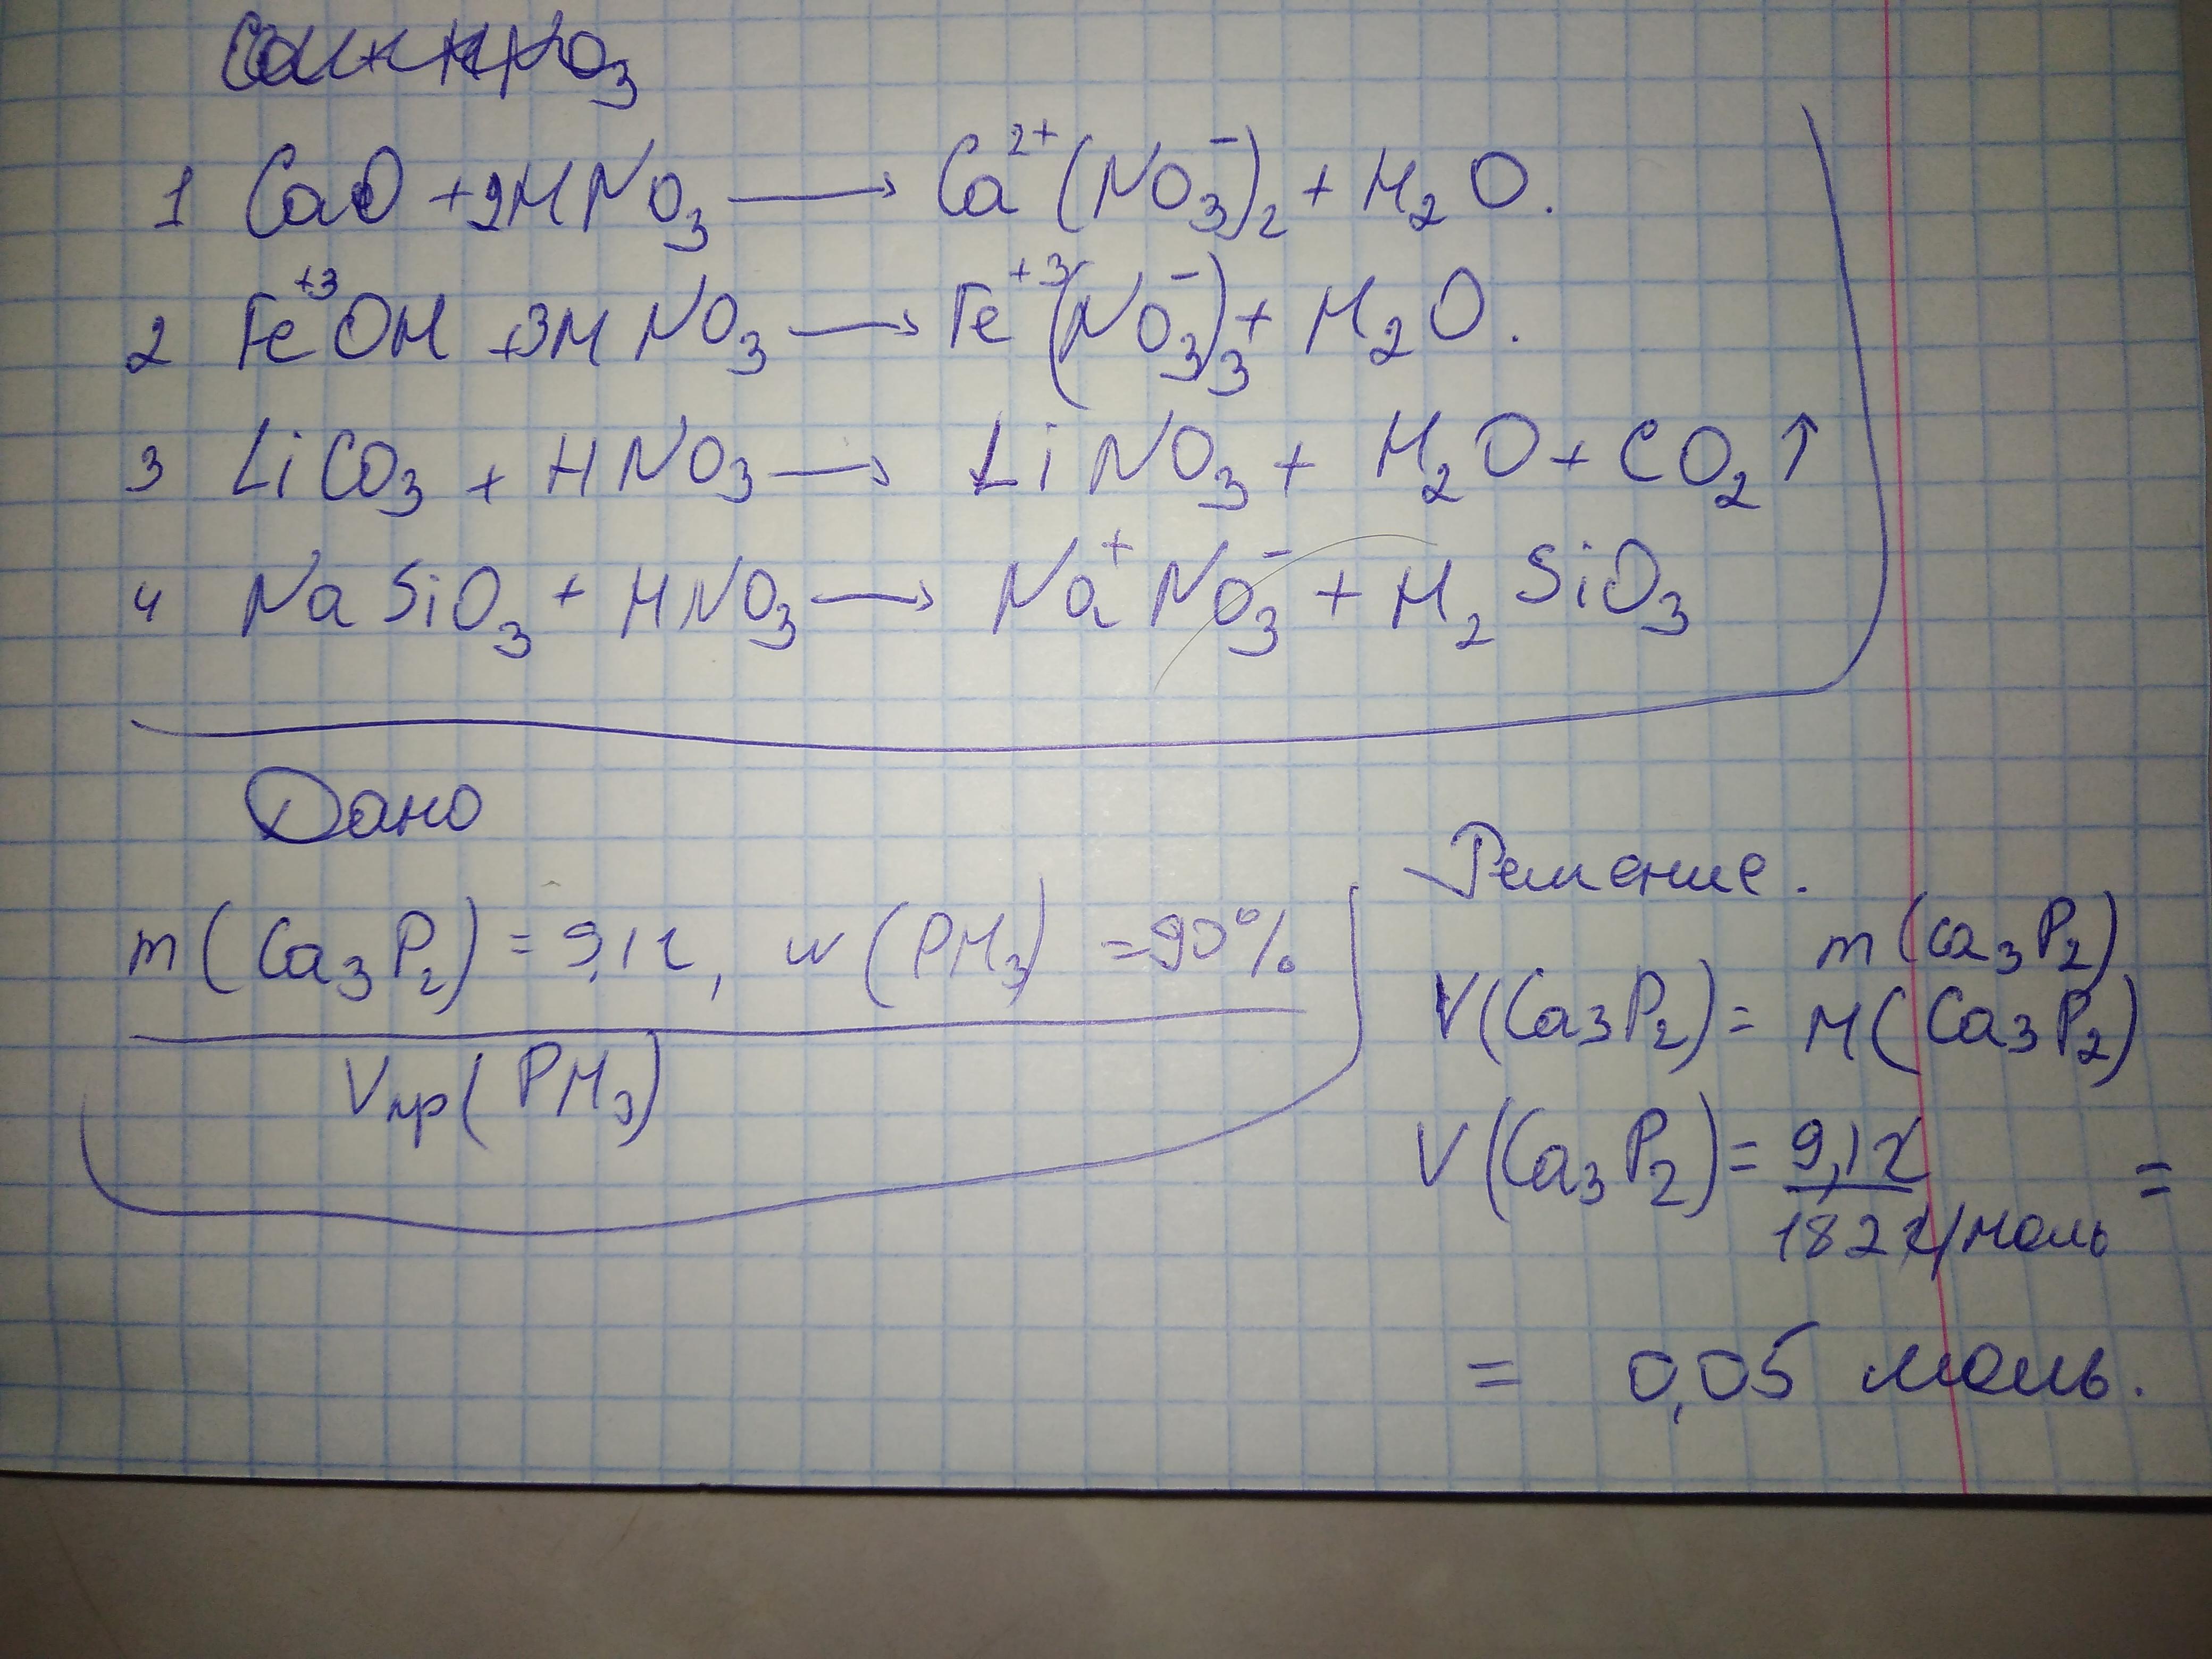 1 CaO + 2HNO₃ → Ca²⁺(NO₃⁻)₂ + H₂O.
2 Fe⁺³OH + 3HNO₃ → Fe⁺³(NO₃⁻)₃ + H₂O.
3 LiCO₃ + HNO₃ → LiNO₃ + H₂O + CO₂↑
4 NaSiO₃ + HNO₃ → Na⁺NO₃⁻ + H₂SiO₃
Дано
m(Ca₃P₂) = 9,1г, w(PH₃) = 90%
Vпр(PH₃)
Решение.
V(Ca₃P₂) = m(Ca₃P₂)
M(Ca₃P₂)
V(Ca₃P₂) = 9,1г =
182г/моль
= 0,05 моль.